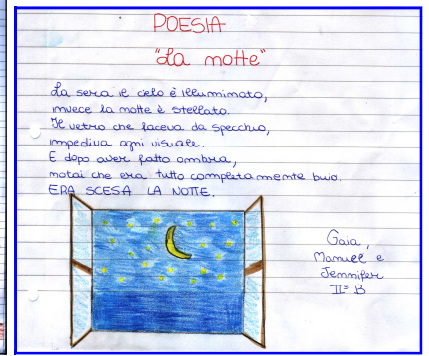 POESIA
"La notte"
La sera il cielo è illuminato,
invece la notte è stellato.
Il vetro che faceva da specchio,
impediva ogni visuale.
E dopo aver fatto ombra,
notai che era tutto completamente buio.
ERA SCESA LA NOTTE.
Gaia,
Manuel e
Jennifer
II^a B